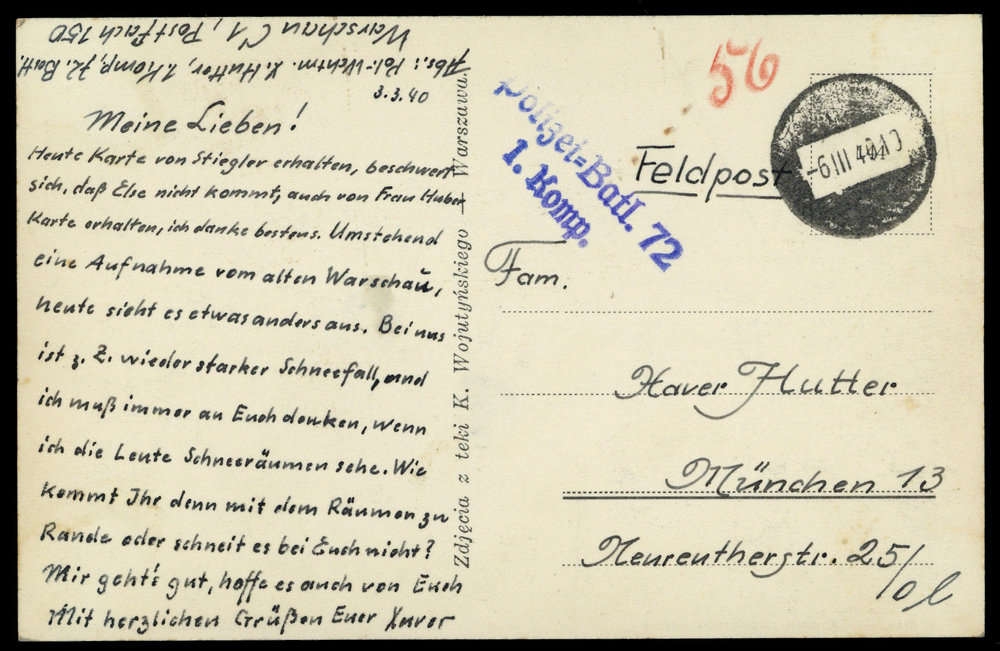 Warschau C 1, Postfach 150
Abs.: Pol.-Wchtm. X. Hutter, 1. Komp., 72. Batl.
3.3.40
Meine Lieben!
Heute Karte von Stiegler erhalten, beschwert
sich, daß Else nicht kommt, auch von Frau Huber
Karte erhalten, ich danke bestens. Umstehend
eine Aufnahme vom alten Warschau,
heute sieht es etwas anders aus. Bei uns
ist z. Z. wieder starker Schneefall, und
ich muß immer an Euch denken, wenn
ich die Leute Schneeräumen sehe. Wie
kommt Ihr denn mit dem Räumen zu
Rande oder schneit es bei Euch nicht?
Mir geht's gut, hoffe es auch von Euch
Mit herzlichen Grüßen Euer Xaver
Zdjęcia z teki K. Wojutyńskiego — Warszawa.
56
Polizei=Batl. 72
1. Komp.
Feldpost
-6 III 40
Fam.
Xaver Hutter
München 13
Neureutherstr. 25/
0 l